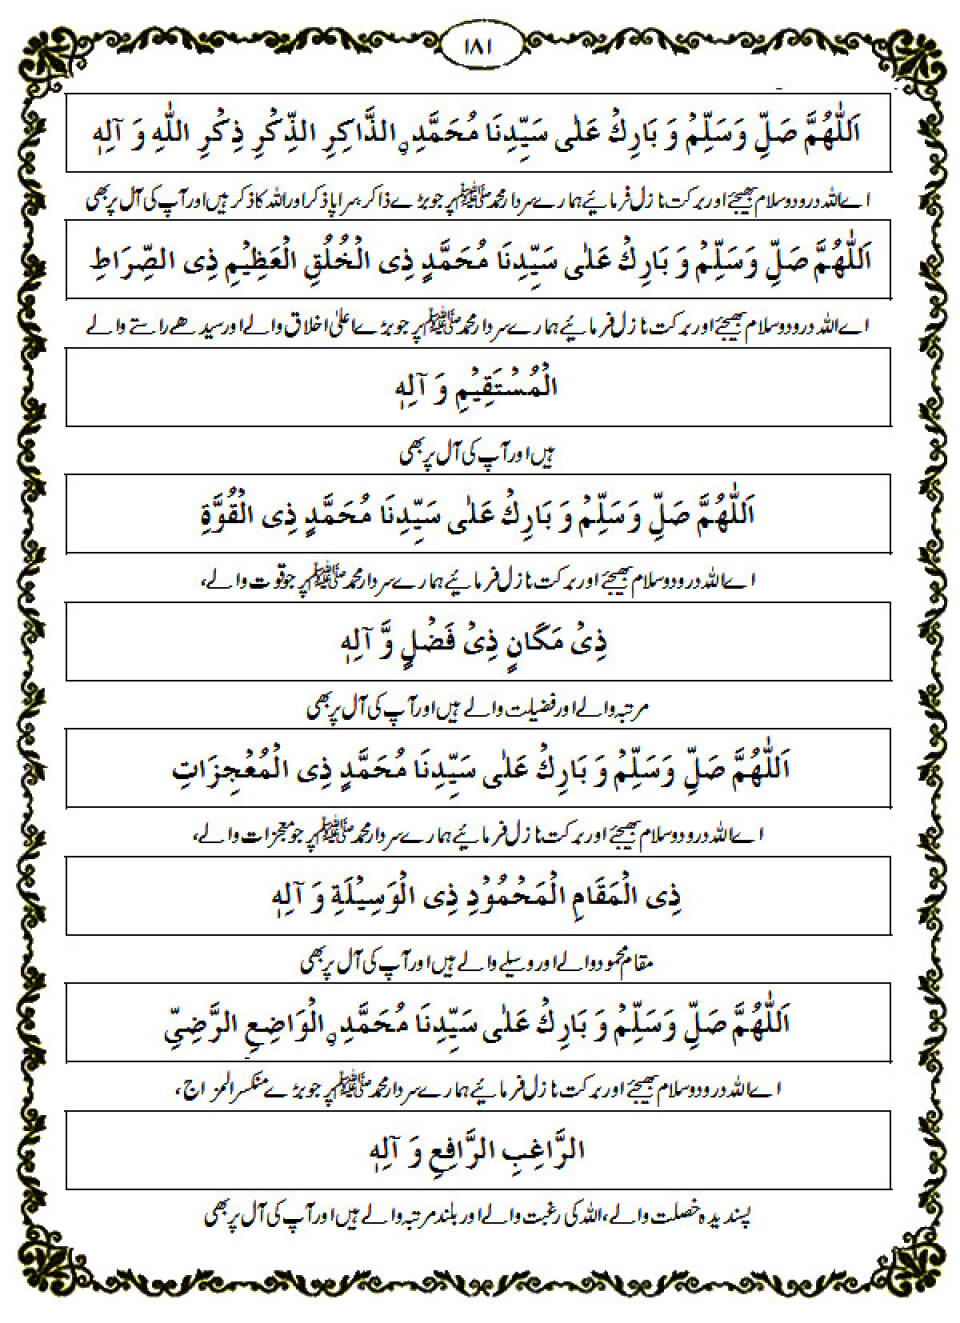 ۱۸۱
اَللّٰهُمَّ صَلِّ وَسَلِّمْ وَ بَارِكْ عَلٰى سَيِّدِنَا مُحَمَّدِ ِۨالذَّاكِرِ الذِّكْرِ ذِكْرِ اللّٰهِ وَ آلِهٖ
اے اللہ درود و سلام بھیجئے اور برکت نازل فرمائیے ہمارے سردار محمد ﷺ پر جو بڑے ذاکر، سراپا ذکر اور اللہ کا ذکر ہیں اور آپ کی آل پر بھی
اَللّٰهُمَّ صَلِّ وَسَلِّمْ وَ بَارِكْ عَلٰى سَيِّدِنَا مُحَمَّدٍ ذِى الْخُلُقِ الْعَظِيْمِ ذِى الصِّرَاطِ
اے اللہ درود و سلام بھیجئے اور برکت نازل فرمائیے ہمارے سردار محمد ﷺ پر جو بڑے اعلیٰ اخلاق والے اور سیدھے راستے والے
الْمُسْتَقِيْمِ وَ آلِهٖ
ہیں اور آپ کی آل پر بھی
اَللّٰهُمَّ صَلِّ وَسَلِّمْ وَ بَارِكْ عَلٰى سَيِّدِنَا مُحَمَّدٍ ذِى الْقُوَّةِ
اے اللہ درود و سلام بھیجئے اور برکت نازل فرمائیے ہمارے سردار محمد ﷺ پر جو قوت والے،
ذِىْ مَكَانٍ ذِىْ فَضْلٍ وَّ آلِهٖ
مرتبہ والے اور فضیلت والے ہیں اور آپ کی آل پر بھی
اَللّٰهُمَّ صَلِّ وَسَلِّمْ وَ بَارِكْ عَلٰى سَيِّدِنَا مُحَمَّدٍ ذِى الْمُعْجِزَاتِ
اے اللہ درود و سلام بھیجئے اور برکت نازل فرمائیے ہمارے سردار محمد ﷺ پر جو معجزات والے،
ذِى الْمَقَامِ الْمَحْمُوْدِ ذِى الْوَسِيْلَةِ وَ آلِهٖ
مقام محمود والے اور وسیلے والے ہیں اور آپ کی آل پر بھی
اَللّٰهُمَّ صَلِّ وَسَلِّمْ وَ بَارِكْ عَلٰى سَيِّدِنَا مُحَمَّدِ ِۨالْوَاضِعِ الرَّضِىِّ
اے اللہ درود و سلام بھیجئے اور برکت نازل فرمائیے ہمارے سردار محمد ﷺ پر جو بڑے منکسر المزاج،
الرَّاغِبِ الرَّافِعِ وَ آلِهٖ
پسندیدہ خصلت والے، اللہ کی رغبت والے اور بلند مرتبہ والے ہیں اور آپ کی آل پر بھی